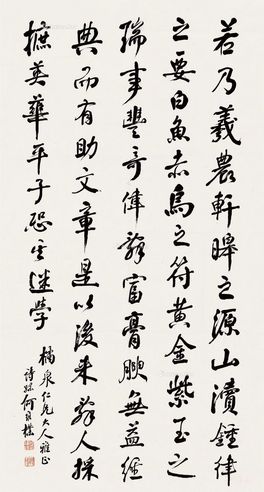 若乃羲農軒皞之源山瀆鍾律
之要白魚赤烏之符黃金紫玉之
瑞事豐奇偉辭富膏腴無益經
典而有助文章是以後來辭人採
摭英華平子恐其迷學
楠泉仁兄大人雅正
詩孫何維樸